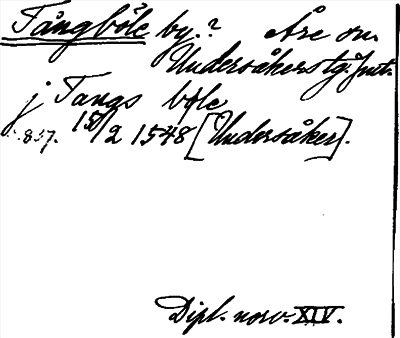 Tångböle by.? Åre sn.
Undersåkers tg. Jmtl.
j Tangs bøle
s. 857. 15/2 1548 [Undersåker].
Dipl. norv. XIV.